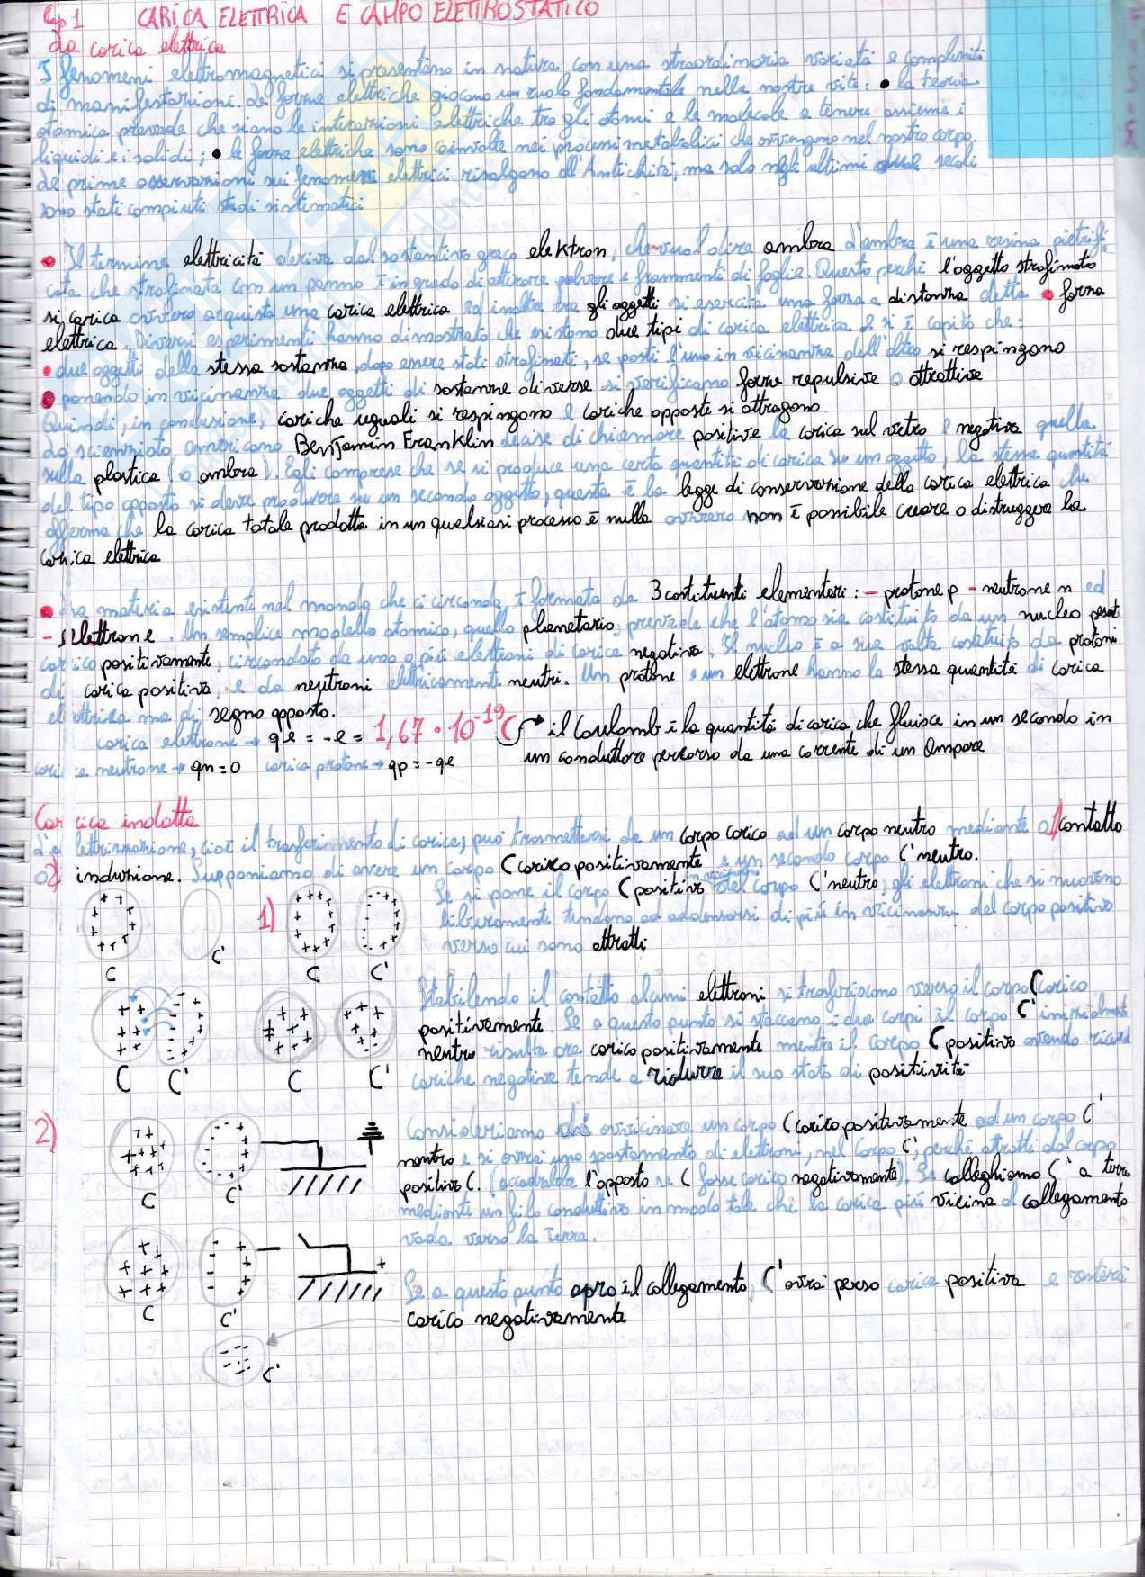 Cap 1 CARICA ELETTRICA E CAMPO ELETTROSTATICO
La carica elettrica
I fenomeni elettromagnetici si presentano in natura con una straordinaria varietà e complessità
di manifestazioni. Le forze elettriche giocano un ruolo fondamentale nella nostra vita: • la teoria
atomica prevede che siano le interazioni elettriche tra gli atomi e le molecole a tenere assieme i
liquidi e i solidi; • le forze elettriche sono coinvolte nei processi metabolici che avvengono nel nostro corpo.
Le prime osservazioni sui fenomeni elettrici risalgono all'Antichità, ma solo negli ultimi due secoli
sono stati compiuti studi sistematici
• Il termine elettricità deriva dal sostantivo greco elektron, che vuol dire ambra. L'ambra è una resina pietrifi
cata che strofinata con un panno è in grado di attrarre polvere e frammenti di foglia. Questo perché l'oggetto strofinato
si carica ovvero acquista una carica elettrica ed inoltre tra gli oggetti si esercita una forza a distanza detta • forza
elettrica. Diversi esperimenti hanno dimostrato che esistono due tipi di carica elettrica e si è capito che:
• due oggetti della stessa sostanza, dopo essere stati strofinati, se posti l'uno in vicinanza dell'altro si respingono
• ponendo in vicinanza due oggetti di sostanze diverse si verificano forze repulsive o attrattive
Quindi, in conclusione, cariche uguali si respingono e cariche opposte si attraggono
Lo scienziato americano Benjamin Franklin decise di chiamare positiva la carica sul vetro e negativa quella
sulla plastica (o ambra). Egli comprese che se si produce una certa quantità di carica su un oggetto, la stessa quantità
del tipo opposto si deve produrre su un secondo oggetto; questa è la legge di conservazione della carica elettrica che
afferma che la carica totale prodotta in un qualsiasi processo è nulla ovvero non è possibile creare o distruggere la
carica elettrica
• La materia esistente nel mondo che ci circonda è formata da 3 costituenti elementari: - protone p - neutrone n ed
- elettrone. Un semplice modello atomico, quello planetario, prevede che l'atomo sia costituito da un nucleo
carico positivamente, circondato da uno o più elettroni di carica negativa. Il nucleo è a sua volta costituito da protoni
di carica positiva, e da neutroni elettricamente neutri. Un protone e un elettrone hanno la stessa quantità di carica
elettrica ma di segno opposto.
carica elettrone → qe = -e = 1,67 • 10⁻¹⁹ C → il Coulomb è la quantità di carica che fluisce in un secondo in
carica neutrone → qn = 0 carica protone → qp = -qe un conduttore percorso da una corrente di un Ampere
Carica indotta
L'elettrizzazione, cioè il trasferimento di carica, può trasmettersi da un corpo carico ad un corpo neutro mediante 1) contatto
o 2) induzione. Supponiamo di avere un corpo C carico positivamente e un secondo corpo C' neutro.
Se si pone il corpo C positivo in vicinanza del corpo C' neutro, gli elettroni che si muovono
1) liberamente tendono ad addensarsi di più in vicinanza del corpo positivo
verso cui sono attratti
C C' C C'
Stabilendo il contatto alcuni elettroni si trasferiscono verso il corpo C carico
positivamente. Se a questo punto si staccano i due corpi il corpo C' inizialmente
neutro risulta ora carico positivamente mentre il corpo C positivo avendo
cariche negative tende a ridurre il suo stato di positività
C C' C C'
2) Consideriamo di avvicinare un corpo C carico positivamente ad un corpo C'
neutro e si avrà uno spostamento di elettroni, nel corpo C', perché attratti dal corpo
positivo C. (accadrebbe l'opposto se C fosse carico negativamente). Se colleghiamo C' a terra
mediante un filo conduttivo in modo tale che la carica più vicina al collegamento
vada verso la terra.
C C'
Se a questo punto apro il collegamento, C' avrà perso carica positiva e resterà
carico negativamente
C C'
C'